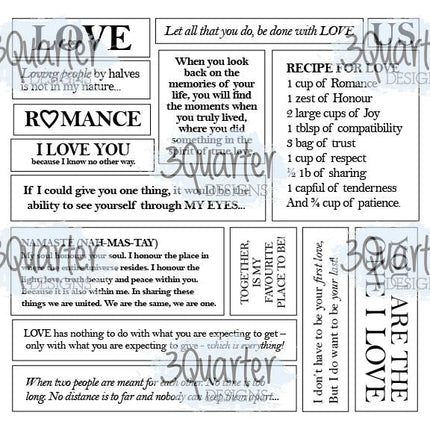 LOVE
Let all that you do, be done with LOVE.
US
Loving people by halves
is not in my nature...
When you look
back on the
memories of your
life, you will find
the moments when
you truly lived,
where you did
something in the
spirit of true love
RECIPE FOR LOVE
1 cup of Romance
1 zest of Honour
2 large cups of Joy
1 tblsp of compatibility
3 bag of trust
1 cup of respect
½ 1b of sharing
1 capful of tenderness
And ¾ cup of patience.
R♡MANCE
I LOVE YOU
because I know no other way.
If I could give you one thing, it would be the
ability to see yourself through MY EYES...
NAMASTE (NAH-MAS-TAY)
My soul honours your soul. I honour the place in
where the entire universe resides. I honour the
light, love, truth beauty and peace within you.
Because it is also within me. In sharing these
things we are united. We are the same, we are one.
TOGETHER,
IS MY
FAVOURITE
PLACE TO BE!
I don't have to be your first love,
But I do want to be your last!
YOU ARE THE
ONE I LOVE
LOVE has nothing to do with what you are expecting to get –
only with what you are expecting to give - which is everything!
When two people are meant for each other. No time is too
long. No distance is to far and nobody can keep them apart...
3Quarter
DESIGNS
3Quarter
DESIGNS
3Quarter
DESIGNS
3Quarter
DESIGNS
3Quarter
DESIGNS
3Quarter
DESIGNS